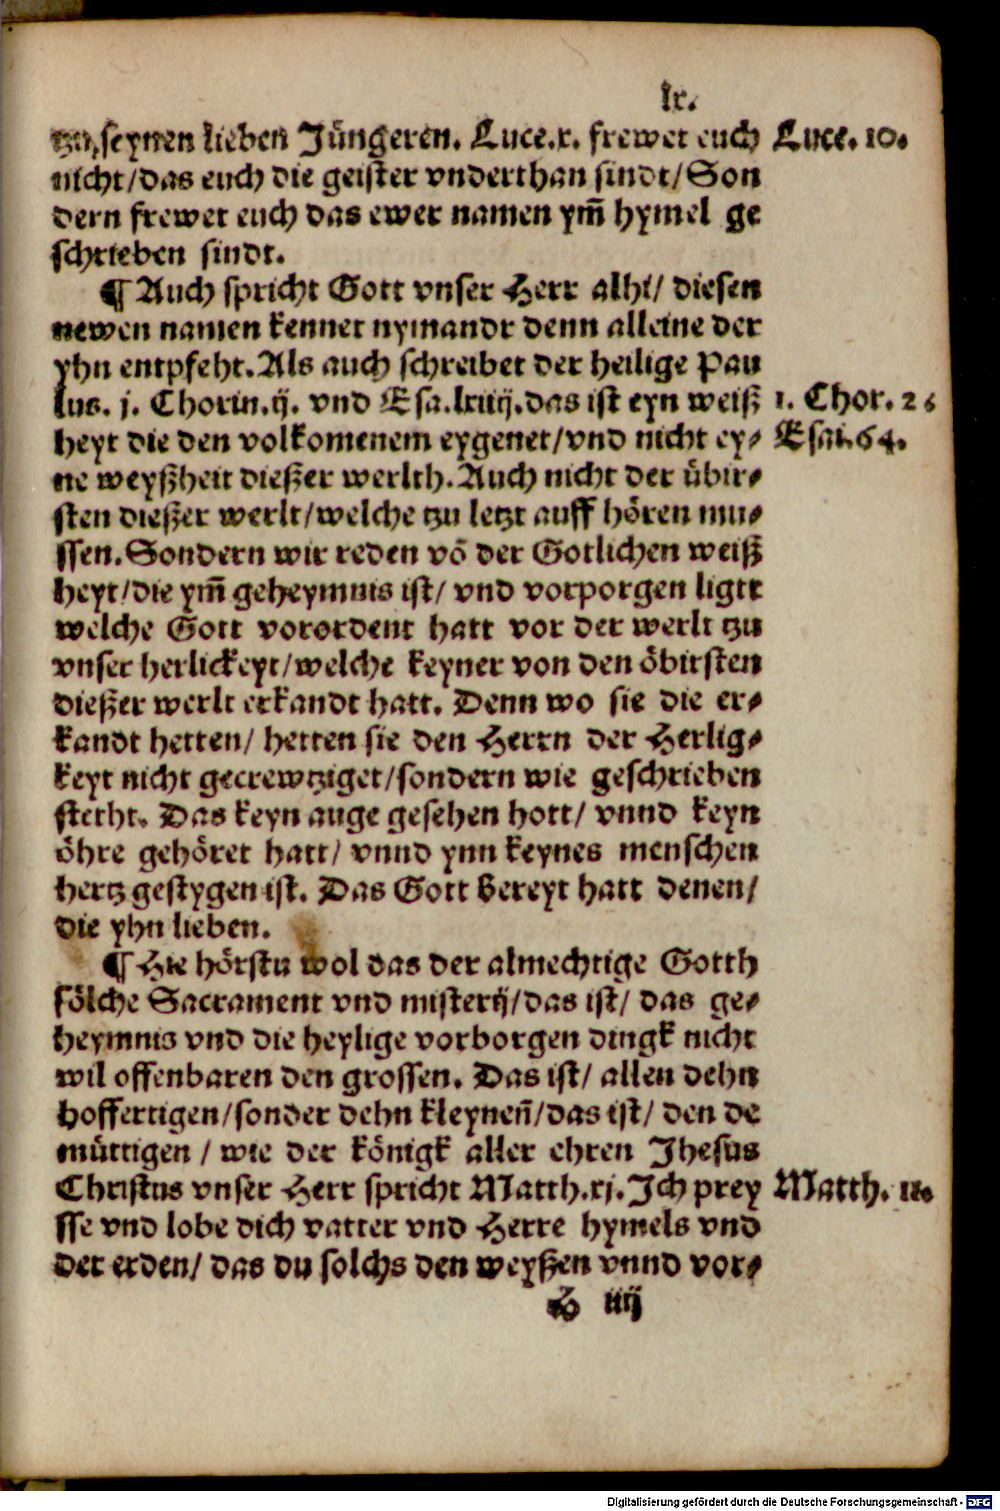 lx.
tzu seynen lieben Jüngeren. Luce.x. frewet euch Luce. 10.
nicht/das euch die geister vnderthan sindt/Son
dern frewet euch das ewer namen ym̃ hymel ge
schrieben sindt.
¶ Auch spricht Gott vnser Herr alhi/ diesen
newen namen kennet nymandt denn alleine der
yhn entpfeht.Als auch schreibet der heilige Pau
lus. j. Chorin.ij. vnd Esa.lxiiij.das ist eyn weiß 1. Chor. 2
heyt die den volkomenem eygenet/vnd nicht ey⸗ Esai.64.
ne weyßheit dießer werlth.Auch nicht der übir⸗
sten dießer werlt/welche tzu letzt auff hören mu⸗
ssen.Sondern wir reden võ der Gotlichen weiß
heyt/die ym̃ geheymnis ist/ vnd vorporgen ligtt
welche Gott vorordent hatt vor der werlt tzu
vnser herlickeyt/welche keyner von den öbirsten
dießer werlt erkandt hatt. Denn wo sie die er⸗
kandt hetten/ hetten sie den Herrn der Herlig⸗
keyt nicht gecrewtziget/sondern wie geschrieben
stetht. Das keyn auge gesehen hott/ vnnd keyn
öhre gehöret hatt/ vnnd ynn keynes menschen
hertz gestygen ist. Das Gott bereyt hatt denen/
die yhn lieben.
¶ Hie hörstu wol das der almechtige Gotth
sölche Sacrament vnd misterij/das ist/ das ge⸗
heymnis vnd die heylige vorborgen dingk nicht
wil offenbaren den grossen. Das ist/ allen dehn
hoffertigen/sonder dehn kleynen̄/das ist/ den de
müttigen / wie der königk aller ehren Jhesus
Christus vnser Herr spricht Matth.xj.Jch prey Matth. 11.
sse vnd lobe dich vatter vnd Herre hymels vnd
der erden/ das du solchs den weyßen vnnd vor⸗
H iiij
Digitalisierung gefördert durch die Deutsche Forschungsgemeinschaft - DFG